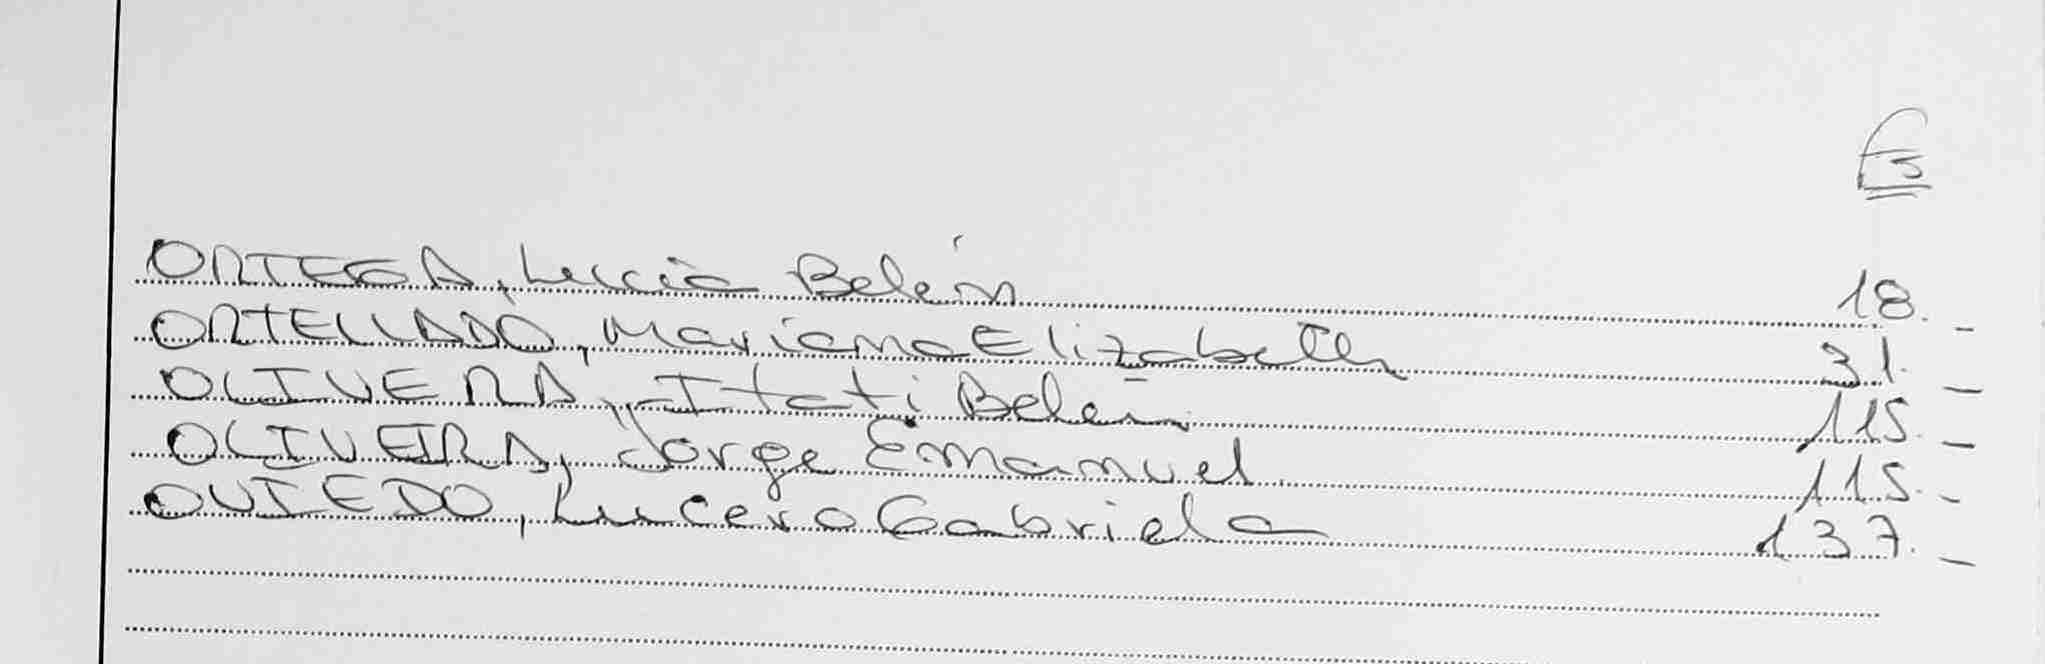 Fs
ORTEGA, Lucia Belén 18. -
ORTELLADO, Mariana Elizabeth 31. -
OLIVERA, Itati Belén 115. -
OLIVEIRA, Jorge Emanuel. 115. -
OVIEDO, Lucero Gabriela 137. -